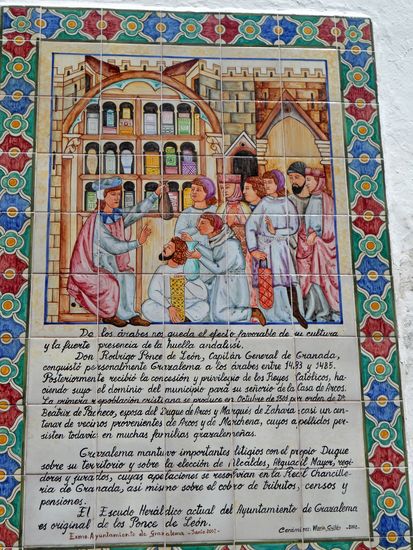 De los árabes nos queda el efecto favorable de su cultura
y la fuerte presencia de la huella andalusí.
Don Rodrigo Ponce de León, Capitán General de Granada,
conquistó personalmente Grazalema a los árabes entre 1483 y 1485.
Posteriormente recibió la concesión y privilegio de los Reyes Católicos, ha-
ciendo suyo el dominio del municipio para su señorío de la Casa de Arcos.
La primera repoblación cristiana se produce en Octubre de 1501 por orden de Dª
Beatriz de Pacheco, esposa del Duque de Arcos y Marqués de Zahara: casi un cen-
tenar de vecinos provenientes de Arcos y de Marchena, cuyos apellidos per-
sisten todavía en muchas familias grazalemeñas.
Grazalema mantuvo importantes litigios con el propio Duque
sobre su territorio y sobre la elección de Alcaldes, Alguacil Mayor, regi-
dores y jurados, cuyas apelaciones se resolvían en la Real Chancille-
ría de Granada, así mismo sobre el cobro de tributos, censos y
pensiones.
El Escudo Heráldico actual del Ayuntamiento de Grazalema
es original de los Ponce de León.
Exmo. Ayuntamiento de Grazalema - Junio 2002 - Cerámicas: